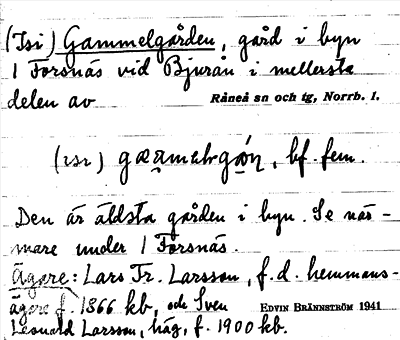 (Isi) Gammelgården, gård i byn
1 Forsnäs vid Bjurån i mellersta
delen av Råneå sn och tg, Norrb. l.
bf. fem.
Den är äldsta gården i byn. Se när-
mare under 1 Forsnäs.
Ägare: Lars Fr. Larsson, f.d. hemmans-
ägare f. 1866 kb, och Sven
EDVIN BRÄNNSTRÖM 1941
Leonard Larsson, häg, f. 1900 kb.